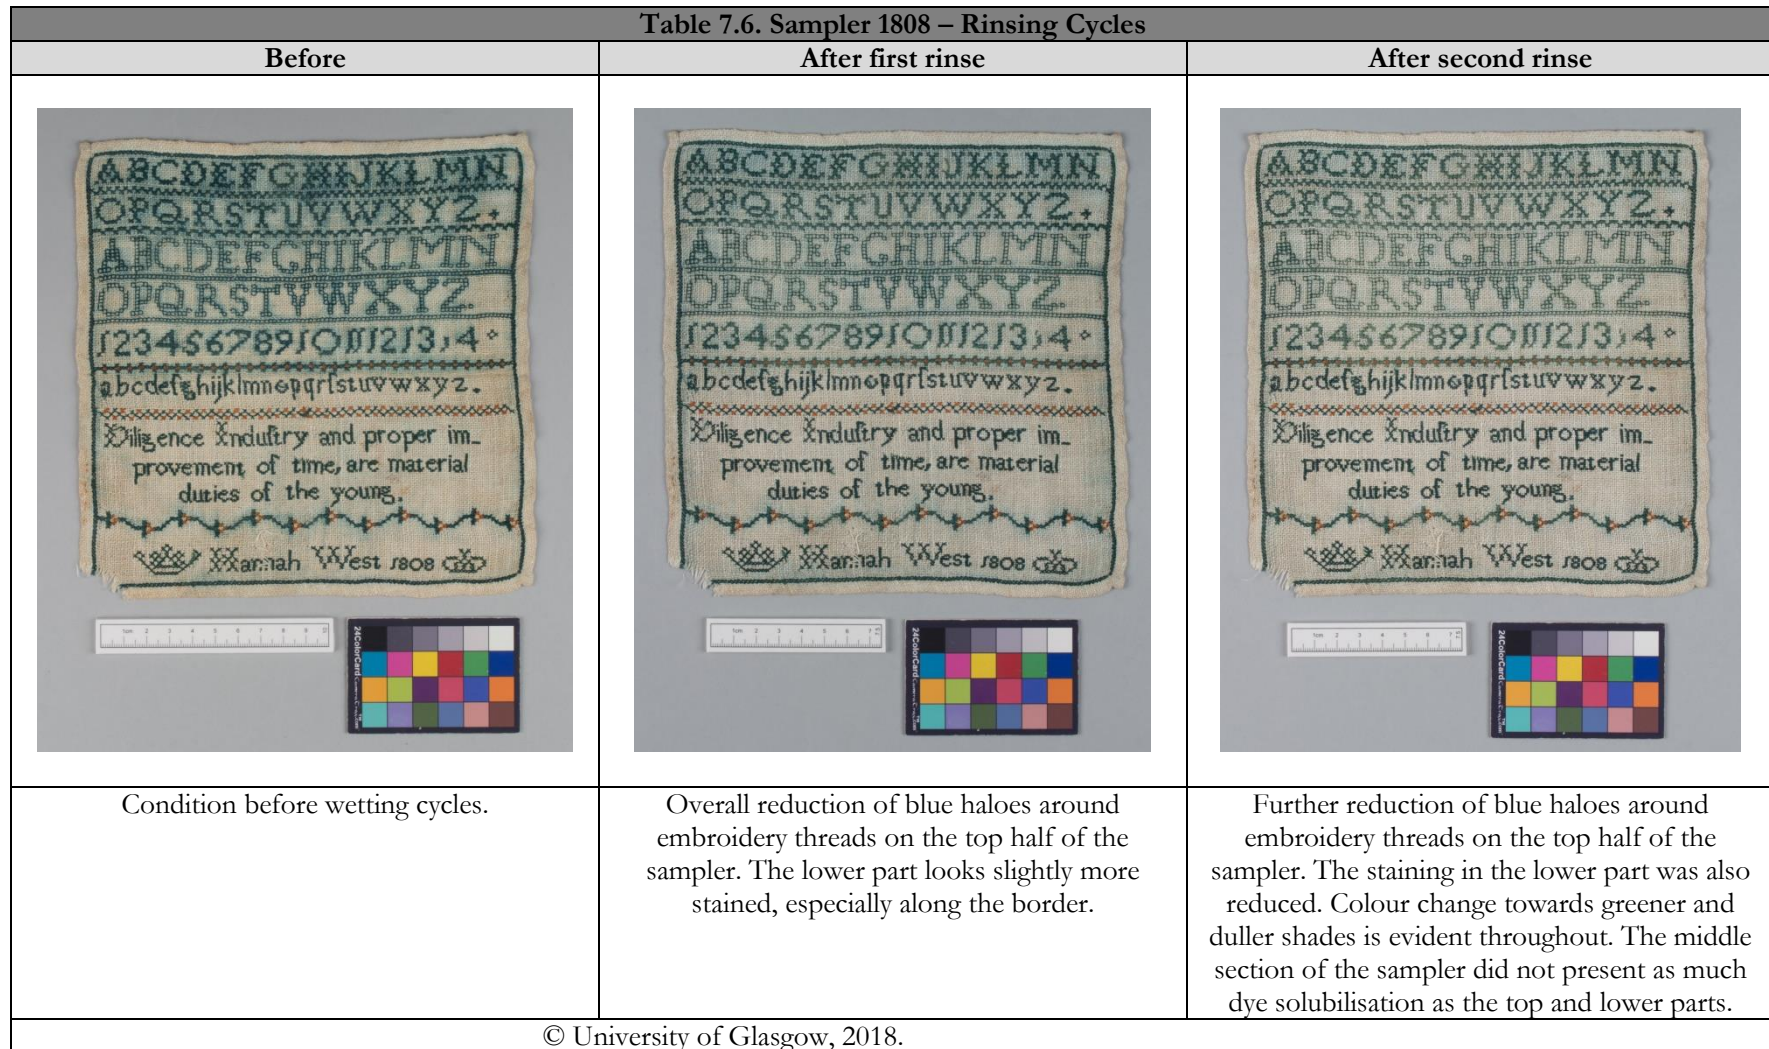 Table 7.6. Sampler 1808 – Rinsing Cycles
Before
After first rinse
After second rinse
ABCDEFGHIJKLMN
OPQRSTUVWXYZ.
ABCDEFGHIKLMN
OPQRSTVWXYZ.
1234567891011121314
abcdefghijklmnopqrſstuvwxyz.
Diligence Induſtry and proper im-
provement of time, are material
duties of the young.
Hannah West 1808
1cm 2 3 4 5 6 7 8 9
24ColorCard
ABCDEFGHIJKLMN
OPQRSTUVWXYZ.
ABCDEFGHIKLMN
OPQRSTVWXYZ.
1234567891011121314
abcdefghijklmnopqrſstuvwxyz.
Diligence Induſtry and proper im-
provement of time, are material
duties of the young.
Hannah West 1808
1cm 2 3 4 5 6 7
24ColorCard
ABCDEFGHIJKLMN
OPQRSTUVWXYZ.
ABCDEFGHIKLMN
OPQRSTVWXYZ.
1234567891011121314
abcdefghijklmnopqrſstuvwxyz.
Diligence Induſtry and proper im-
provement of time, are material
duties of the young.
Hannah West 1808
1cm 2 3 4 5 6 7
24ColorCard
Condition before wetting cycles.
Overall reduction of blue haloes around
embroidery threads on the top half of the
sampler. The lower part looks slightly more
stained, especially along the border.
Further reduction of blue haloes around
embroidery threads on the top half of the
sampler. The staining in the lower part was also
reduced. Colour change towards greener and
duller shades is evident throughout. The middle
section of the sampler did not present as much
dye solubilisation as the top and lower parts.
© University of Glasgow, 2018.